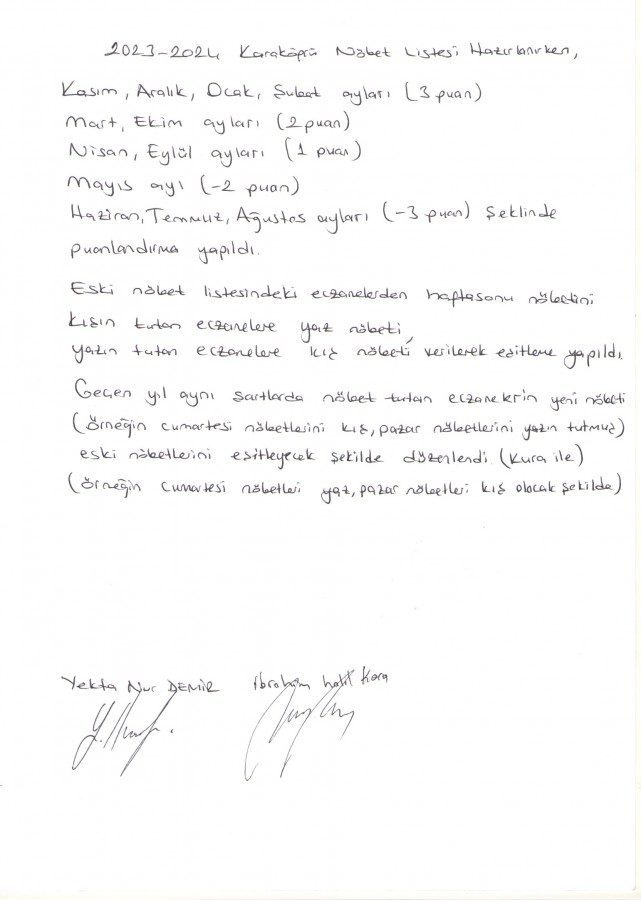 2023-2024 Karaköprü Nöbet Listesi Hazırlanırken,
Kasım, Aralık, Ocak, Şubat ayları (3 puan)
Mart, Ekim ayları (2 puan)
Nisan, Eylül ayları (1 puan)
Mayıs ayı (-2 puan)
Haziran, Temmuz, Ağustos ayları (-3 puan) Şeklinde
puanlandırma yapıldı.
Eski nöbet listesindeki eczanelerden haftasonu nöbetini
kışın tutan eczanelere yaz nöbeti,
yazın tutan eczanelere kış nöbeti verilerek eşitleme yapıldı.
Geçen yıl aynı şartlarda nöbet tutan eczanelerin yeni nöbeti
(örneğin cumartesi nöbetlerini kış, pazar nöbetlerini yazın tutmuş)
eski nöbetlerini eşitleyecek şekilde düzenlendi. (kura ile)
(örneğin cumartesi nöbetleri yaz, pazar nöbetleri kış olacak şekilde)
Yekta Nur DEMİR İbrahim halil Kara